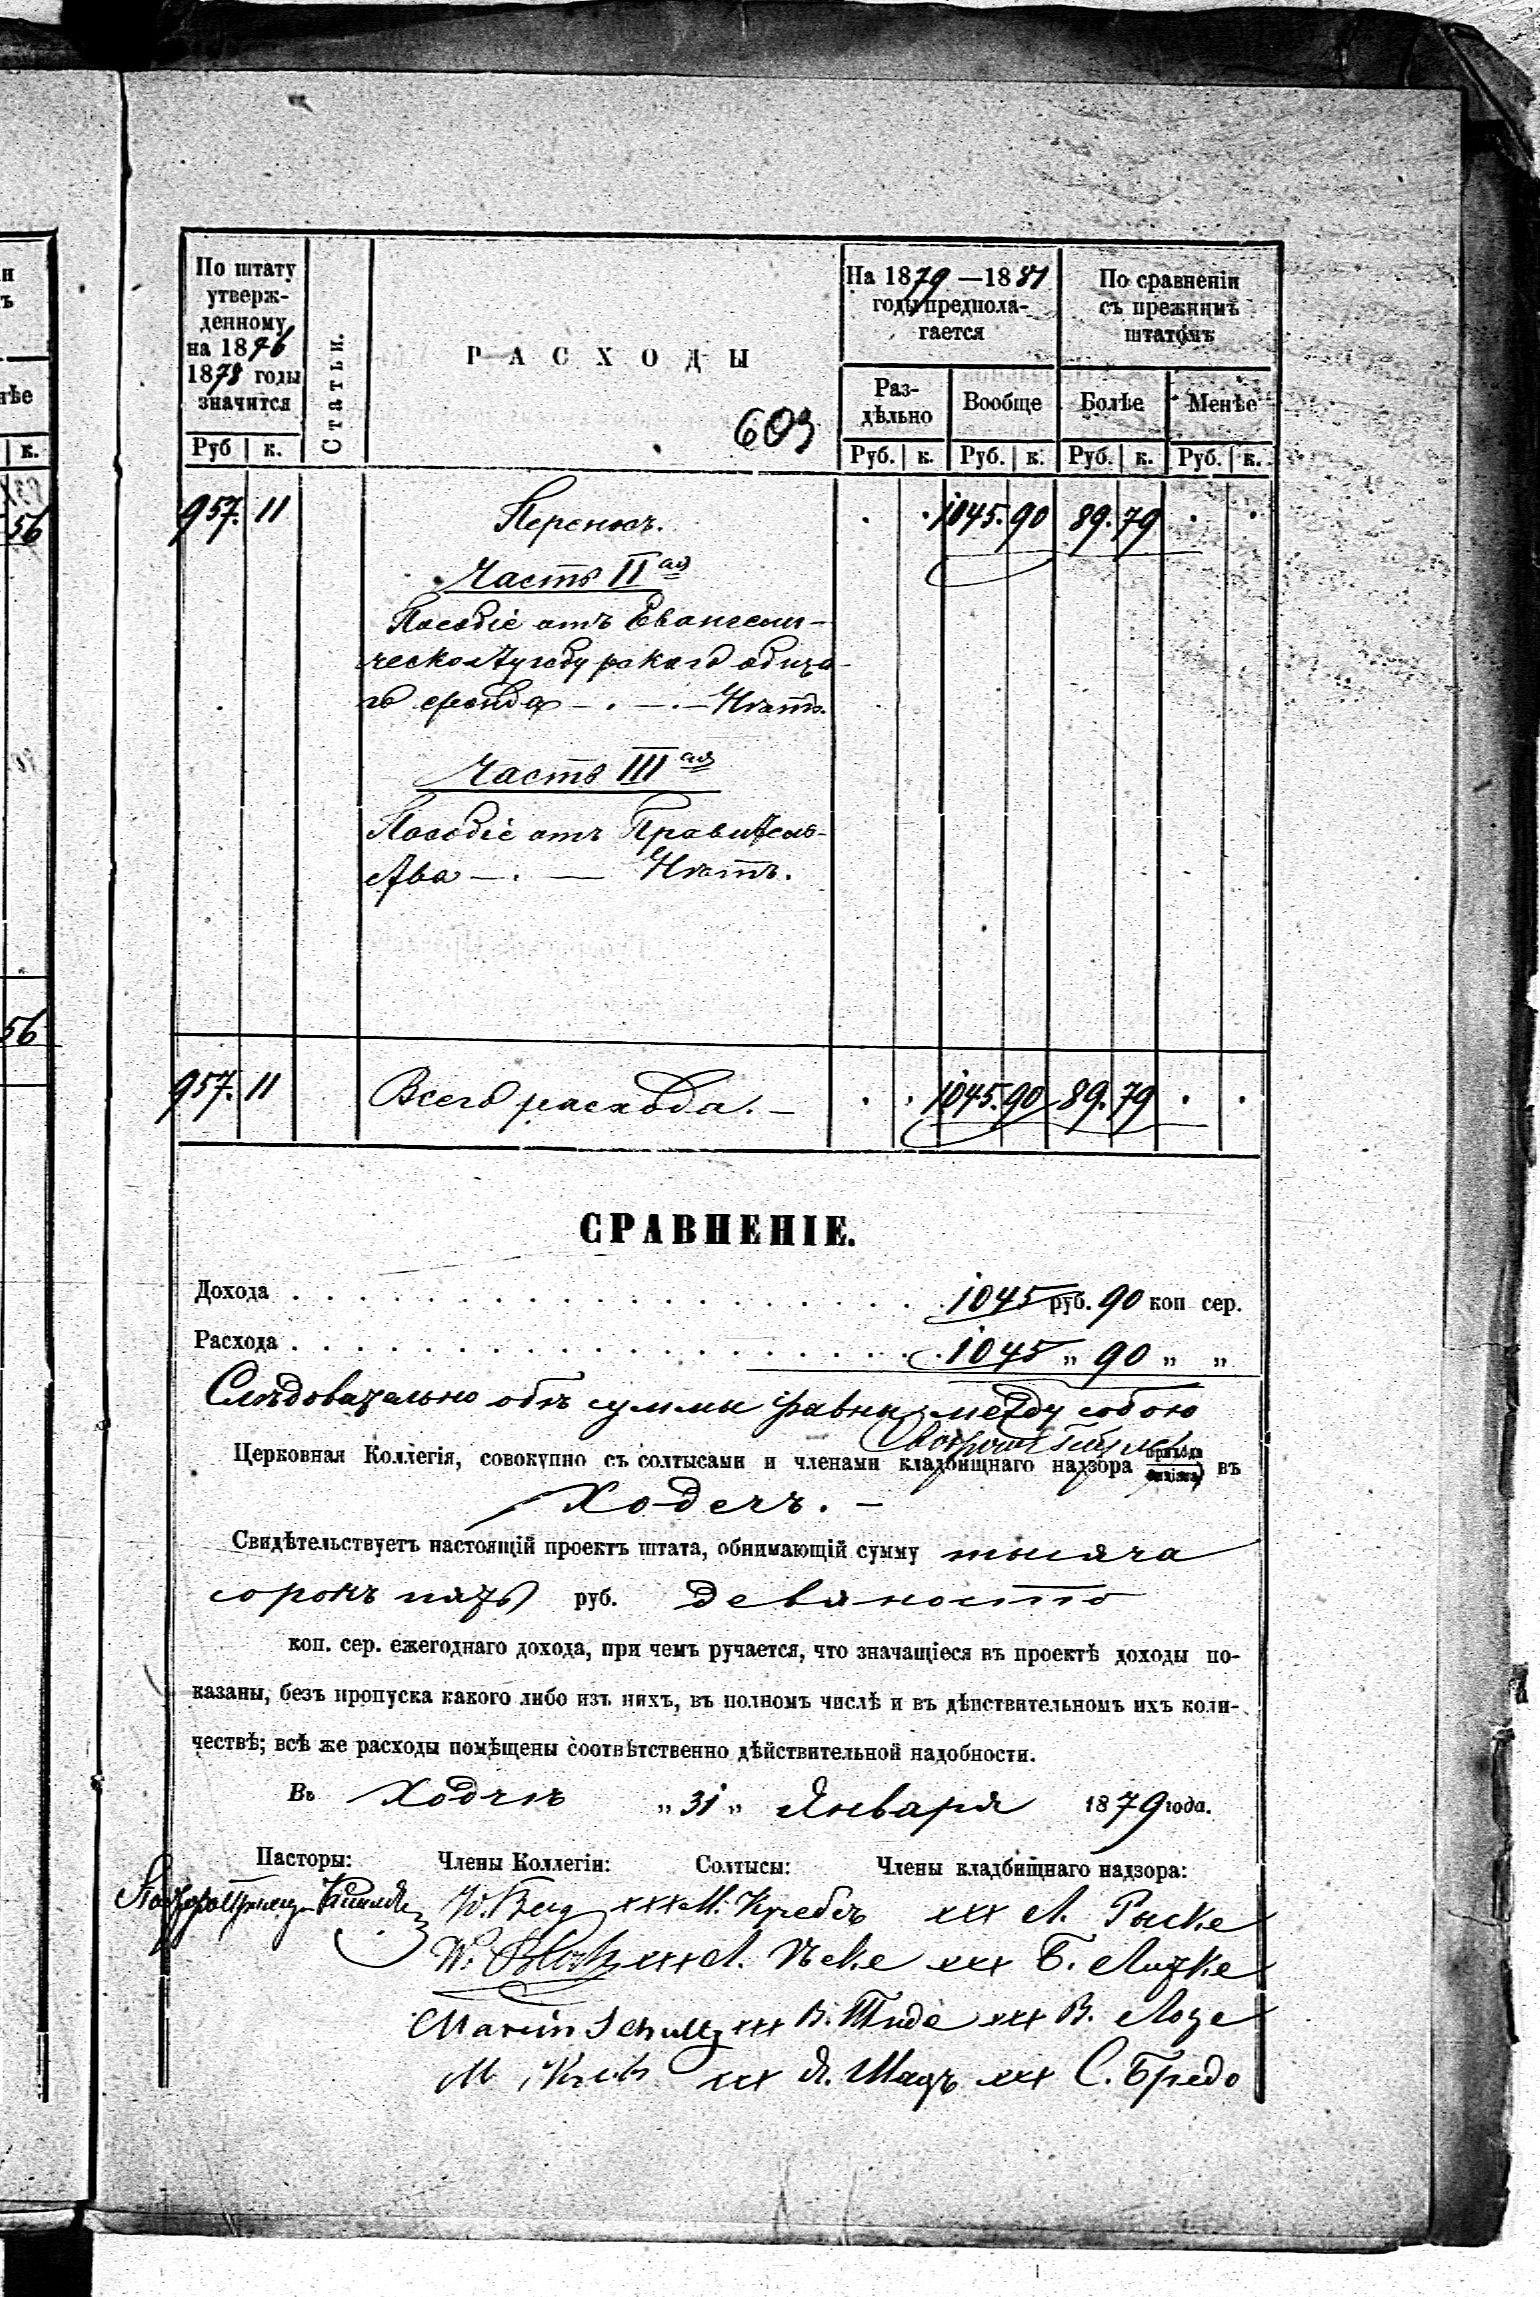 По штату
утверж-
денному
на 1876
1878 годы
значится
Руб к.
Статьи.
РАСХОДЫ
603
На 1879—1881
годы предпола-
гается
Раз-
дѣльно
Вообще
Руб. к. Руб. к.
По сравненіи
съ прежнимъ
штатомъ
Болѣе Менѣе
Руб. к. Руб. к.
957. 11 Переносъ. 1045. 90 89. 79
Часть II ая
Пособіе отъ Евангели-
ческо Аугсбургскаго обща-
го фонда — . — . — Нѣтъ.
Часть III ая
Пособіе отъ Правитель-
ства — . — Нѣтъ.
957. 11 Всего расхода. — 1045. 90 89. 79
СРАВНЕНІЕ.
Дохода 1045 руб. 90 коп сер.
Расхода 1045 „ 90 „ „
Слѣдовательно обѣ суммы равны между собою
Церковная Коллегія, совокупно съ солтысами и членами кладбищнаго надзора прихода въ
Ходечъ. —
Свидѣтельствуетъ настоящій проектъ штата, обнимающій сумму тысяча
сорокъ пять руб. девяносто
коп. сер. ежегоднаго дохода, при чемъ ручается, что значащіеся въ проектѣ доходы по-
казаны, безъ пропуска какого либо изъ нихъ, въ полномъ числѣ и въ дѣйствительномъ ихъ коли-
чествѣ; всѣ же расходы помѣщены соотвѣтственно дѣйствительной надобности.
Въ Ходчѣ „31„ Января 1879 года.
Пасторы: Члены Коллегіи: Солтысы: Члены кладбищнаго надзора:
xxx М. xxx Л. Рыске
W. xxx Л. xxx Б. Литке
Martin Schultz xxx В. Тиде xxx В. Лозе
M xxx Я. Шацъ xxx С. Бредо
56
56